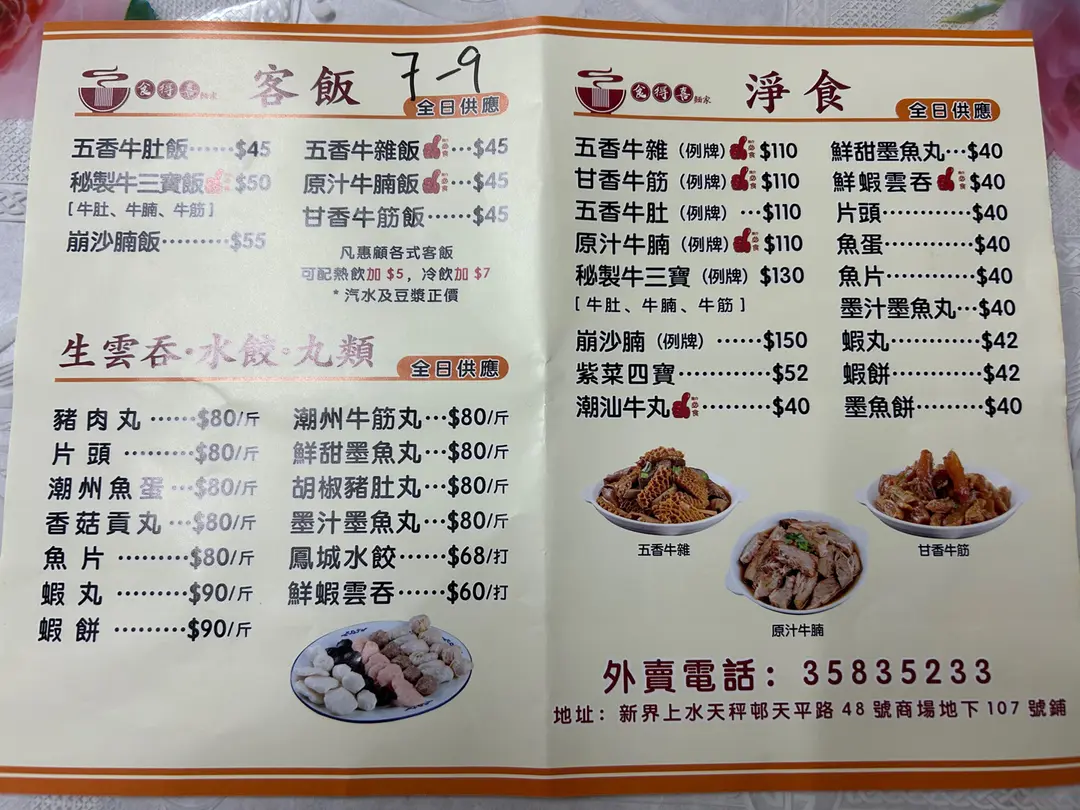 食得喜麵家
客飯
7-9
全日供應
五香牛肚飯……$45
秘製牛三寶飯 $50
[牛肚、牛腩、牛筋]
崩沙腩飯………$55
五香牛雜飯 …$45
原汁牛腩飯 …$45
甘香牛筋飯……$45
凡惠顧各式客飯
可配熱飲加 $5，冷飲加 $7
* 汽水及豆漿正價
生雲吞·水餃·丸類
全日供應
豬肉丸……$80/斤
片頭………$80/斤
潮州魚蛋…$80/斤
香菇貢丸…$80/斤
魚片………$80/斤
蝦丸………$90/斤
蝦餅………$90/斤
潮州牛筋丸…$80/斤
鮮甜墨魚丸…$80/斤
胡椒豬肚丸…$80/斤
墨汁墨魚丸…$80/斤
鳳城水餃……$68/打
鮮蝦雲吞……$60/打
食得喜麵家
淨食
全日供應
五香牛雜（例牌） $110
甘香牛筋（例牌） $110
五香牛肚（例牌）…$110
原汁牛腩（例牌） $110
秘製牛三寶（例牌）$130
[牛肚、牛腩、牛筋]
崩沙腩（例牌）……$150
紫菜四寶…………$52
潮汕牛丸 ………$40
鮮甜墨魚丸…$40
鮮蝦雲吞 $40
片頭…………$40
魚蛋…………$40
魚片…………$40
墨汁墨魚丸…$40
蝦丸…………$42
蝦餅…………$42
墨魚餅………$40
五香牛雜
原汁牛腩
甘香牛筋
外賣電話：35835233
地址：新界上水天秤邨天平路 48 號商場地下 107 號鋪